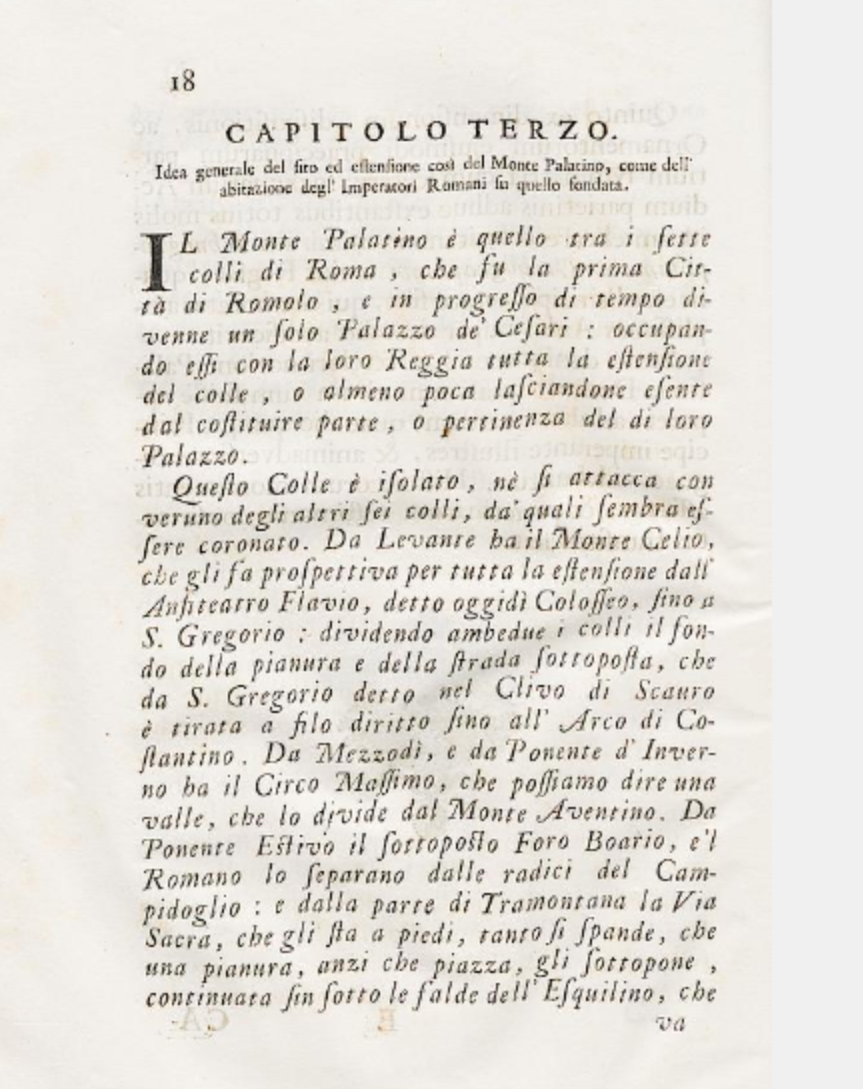 18
CAPITOLO TERZO.
Idea generale del sito ed estensione così del Monte Palatino, come dell'
abitazione degl' Imperatori Romani su quello fondata.
IL Monte Palatino è quello tra i ſette
colli di Roma , che fu la prima Cit-
tà di Romolo , e in progreſſo di tempo di-
venne un ſolo Palazzo de' Ceſari : occupan-
do eſſi con la loro Reggia tutta la eſtenſione
del colle , o almeno poca laſciandone eſente
dal coſtituire parte , o pertinenza del di loro
Palazzo.
Queſto Colle è iſolato, nè ſi attacca con
veruno degli altri ſei colli, da' quali ſembra eſ-
ſere coronato. Da Levante ha il Monte Celio,
che gli fa proſpettiva per tutta la eſtenſione dall'
Anfiteatro Flavio, detto oggidì Coloſſeo, ſino a
S. Gregorio : dividendo ambedue i colli il fon-
do della pianura e della ſtrada ſottopoſta, che
da S. Gregorio detto nel Clivo di Scauro
è tirata a filo diritto ſino all' Arco di Co-
ſtantino. Da Mezzodì, e da Ponente d' Inver-
no ha il Circo Maſſimo, che poſſiamo dire una
valle, che lo divide dal Monte Aventino. Da
Ponente Eſtivo il ſottopoſto Foro Boario, e'l
Romano lo ſeparano dalle radici del Cam-
pidoglio : e dalla parte di Tramontana la Via
Sacra, che gli ſta a piedi, tanto ſi ſpande, che
una pianura, anzi che piazza, gli ſottopone ,
continuata ſin ſotto le falde dell' Eſquilino, che
va